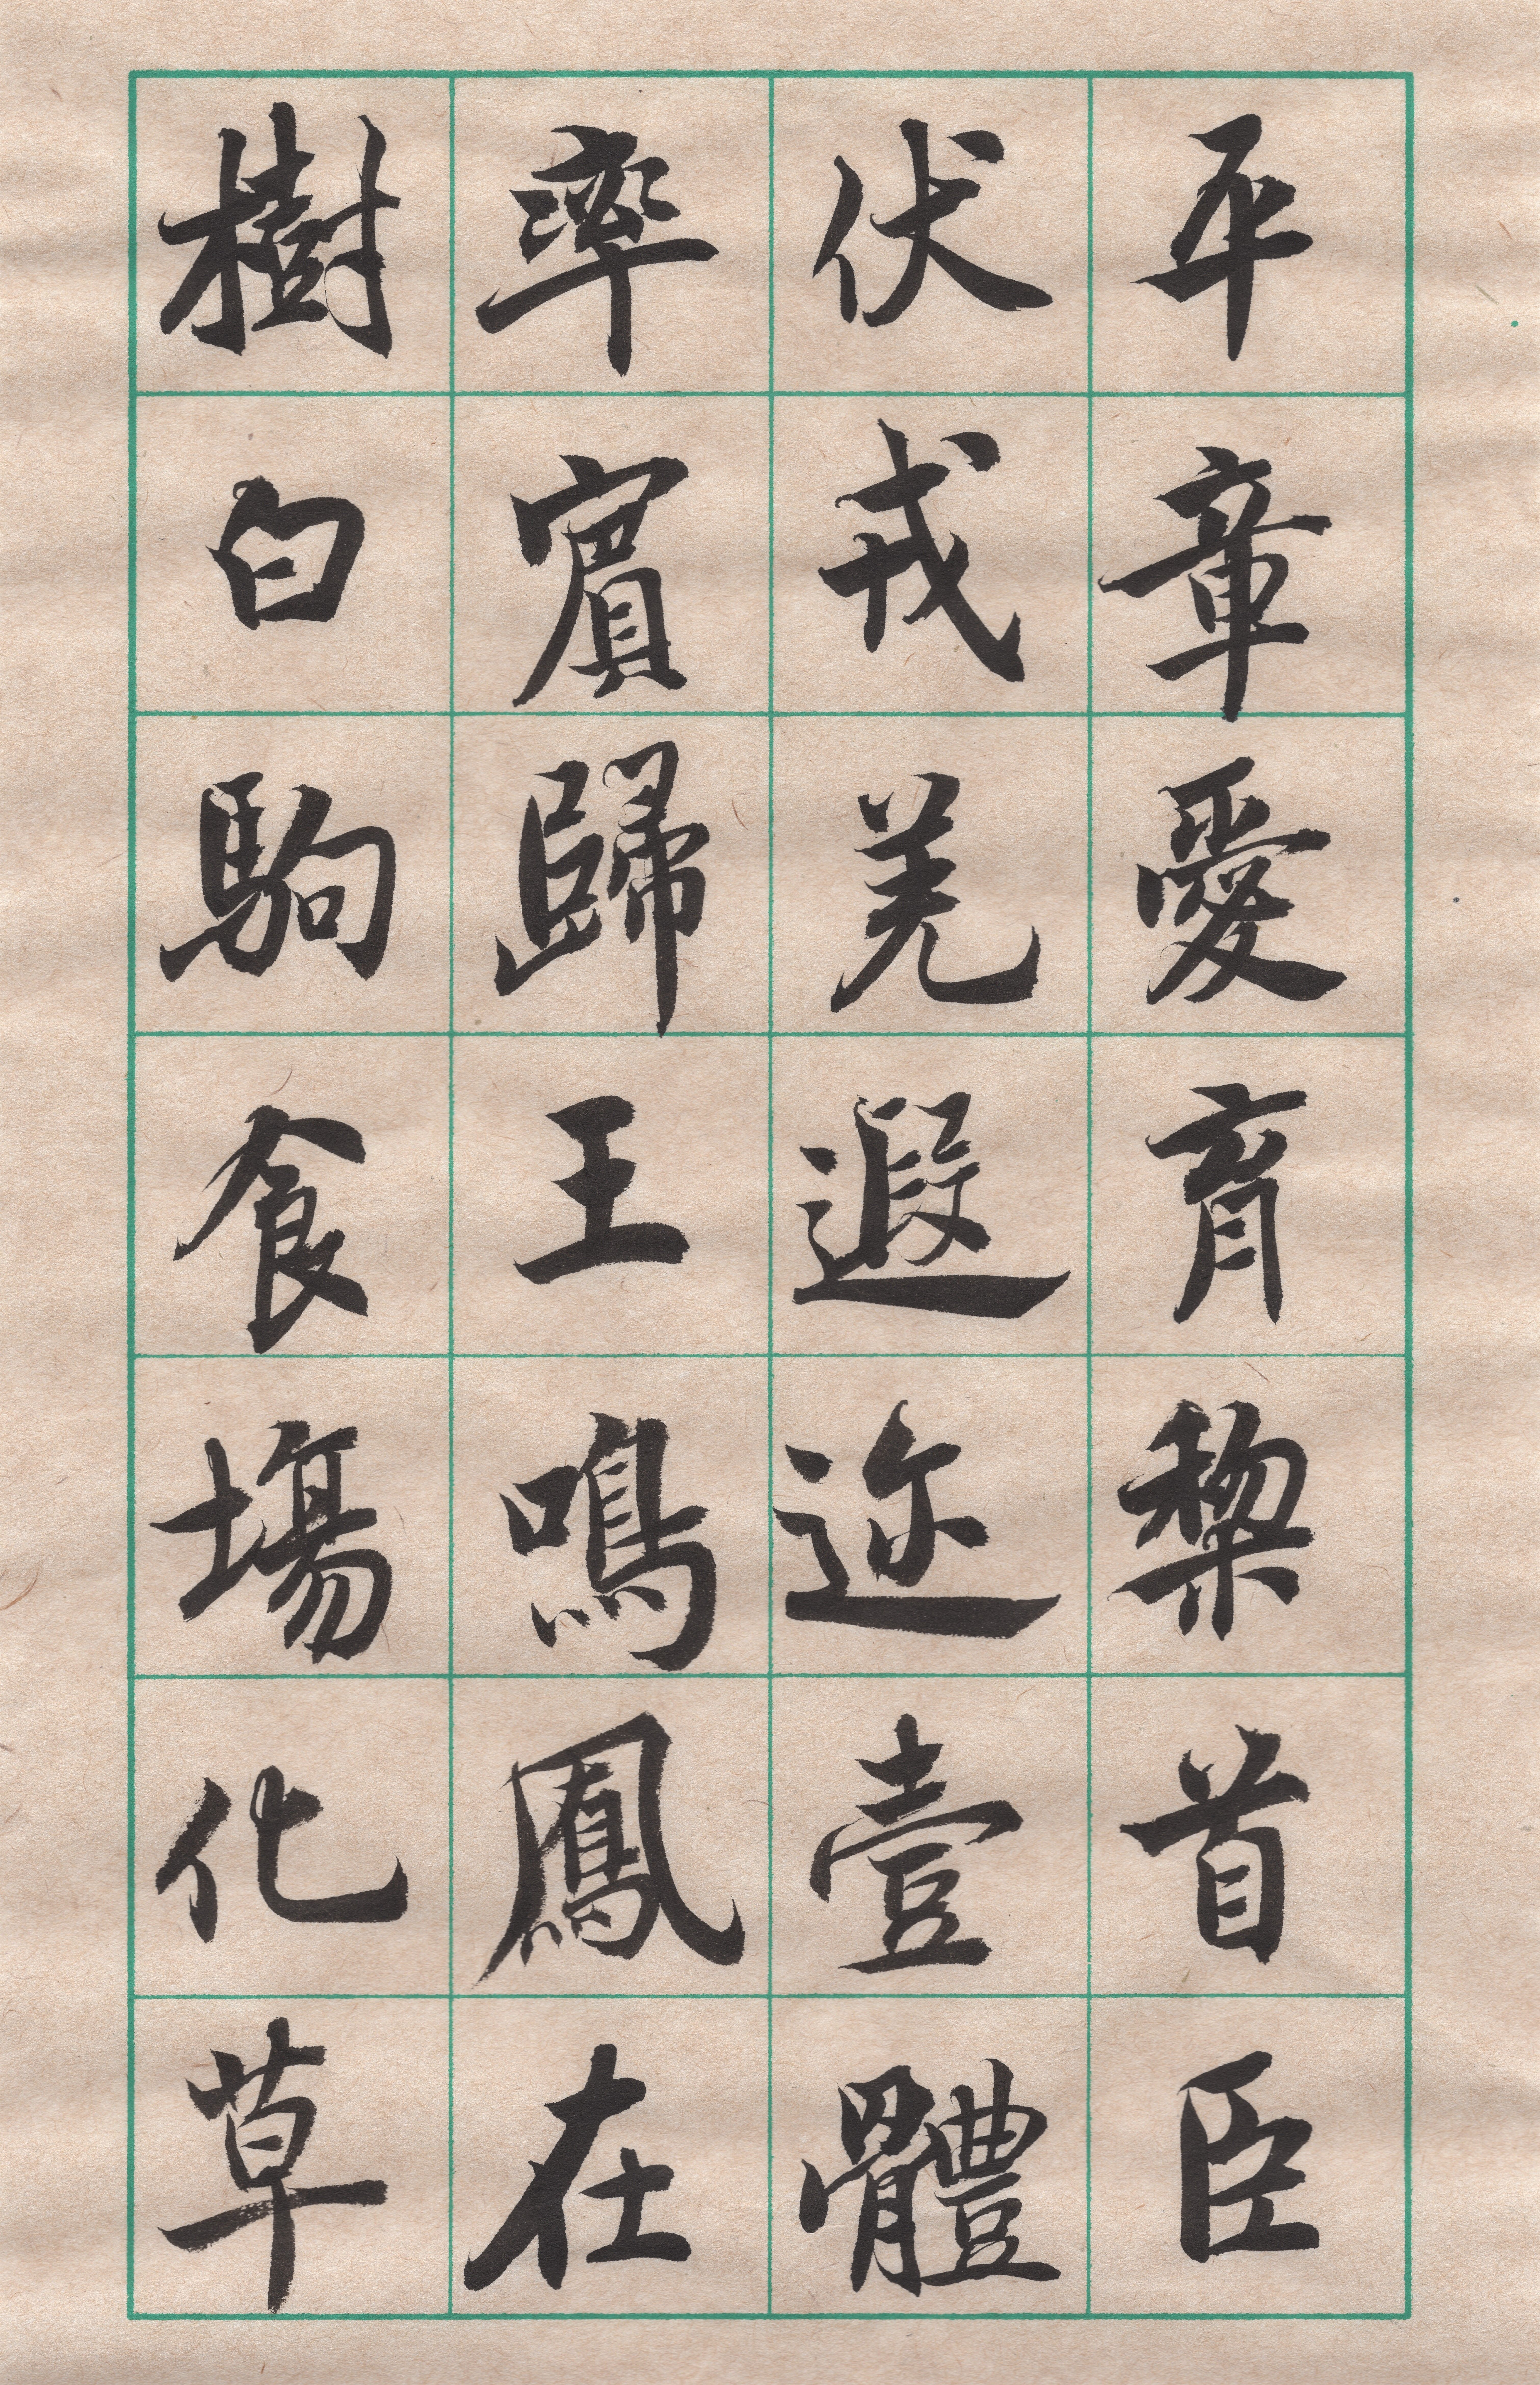 平章愛育黎首臣
伏戎羌遐迩壹體
率賓歸王鳴鳳在
樹白駒食場化草